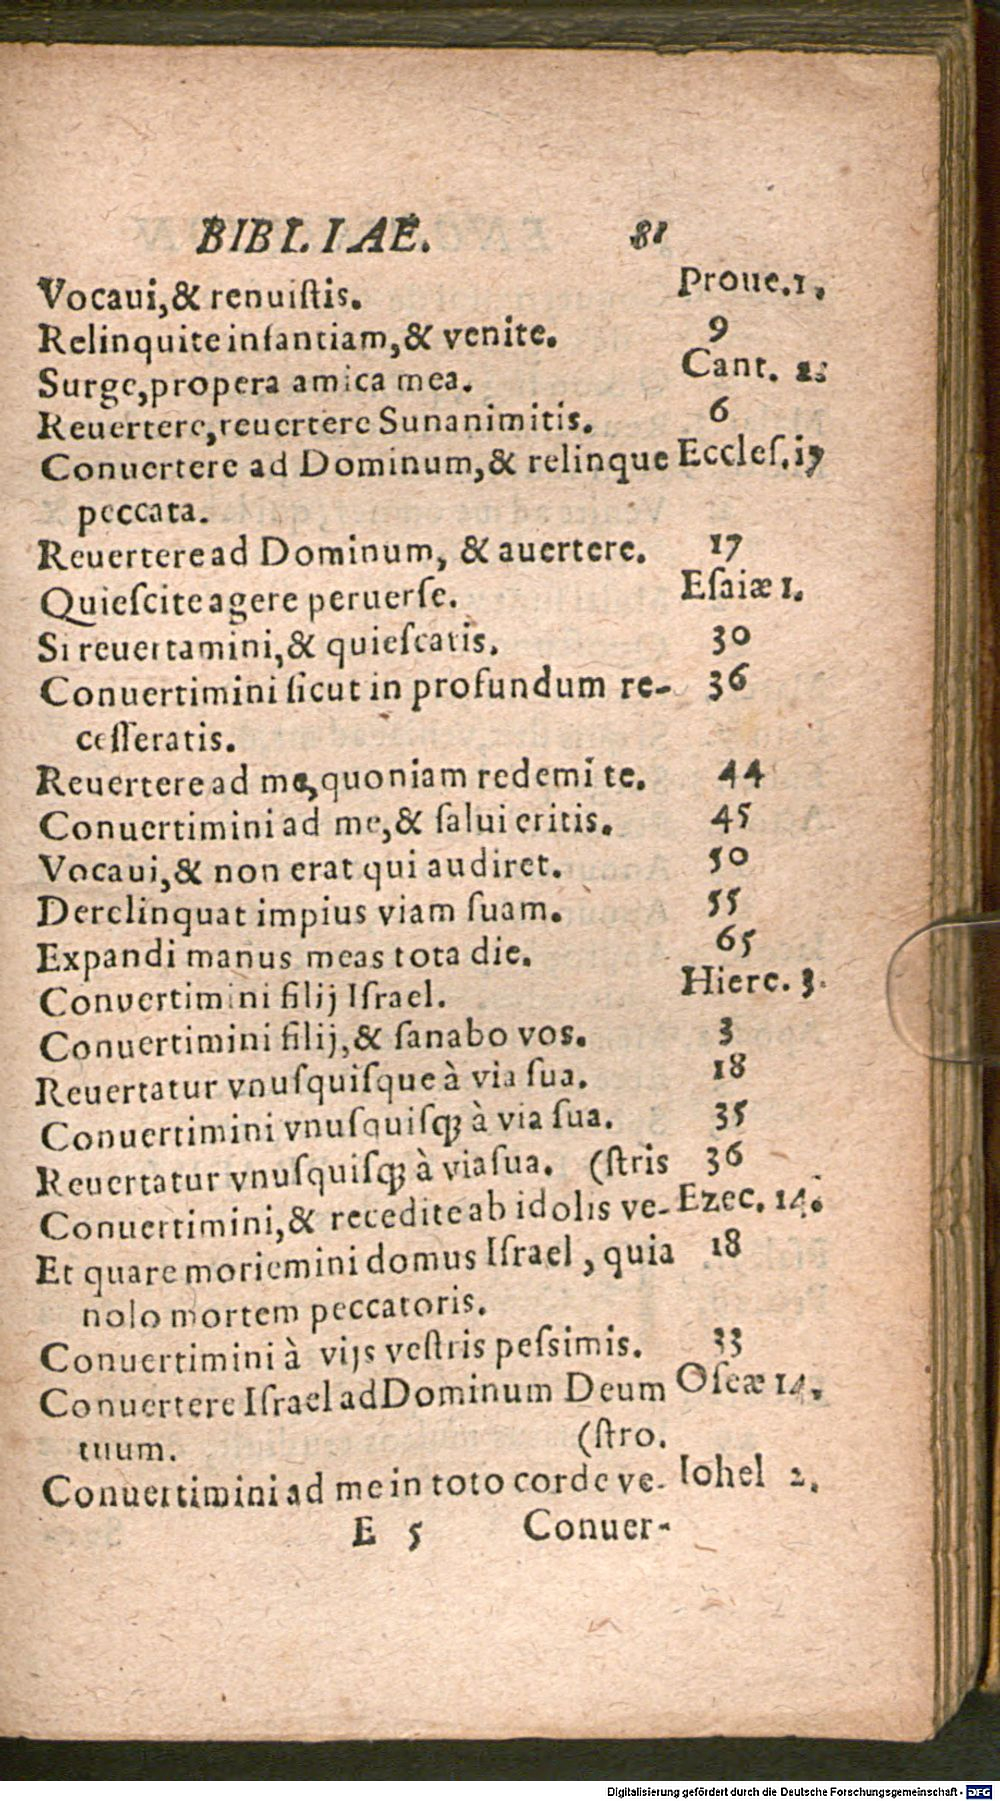 BIBLIAE. 81
Vocaui,& renuiſtis. Proue.1.
Relinquite infantiam,& venite. 9
Surge,propera amica mea. Cant. 2.
Reuertere,reuertere Sunanimitis. 6
Conuertere ad Dominum,& relinque Eccleſ.17
peccata.
Reuertere ad Dominum, & auertere. 17
Quieſcite agere peruerſe. Eſaiæ 1.
Si reuertamini,& quieſcatis. 30
Conuertimini ſicut in profundum re- 36
ceſſeratis.
Reuertere ad me,quoniam redemi te. 44
Conuertimini ad me,& ſalui eritis. 45
Vocaui,& non erat qui audiret. 50
Derelinquat impius viam ſuam. 55
Expandi manus meas tota die. 65
Convertimini filij Iſrael. Hiere. 3.
Conuertimini filij,& ſanabo vos. 3
Reuertatur vnuſquiſque à via ſua. 18
Conuertimini vnuſquiſqꝫ à via ſua. 35
Reuertatur vnuſquiſqꝫ à via ſua. (ſtris 36
Conuertimini,& recedite ab idolis ve- Ezec. 14.
Et quare moriemini domus Iſrael, quia 18
nolo mortem peccatoris.
Conuertimini à vijs veſtris peſsimis. 33
Conuertere Iſrael ad Dominum Deum Oſeæ 14.
tuum. (ſtro.
Conuertimini ad me in toto corde ve- Iohel 2.
E 5 Conuer-
Digitalisierung gefördert durch die Deutsche Forschungsgemeinschaft - DFG